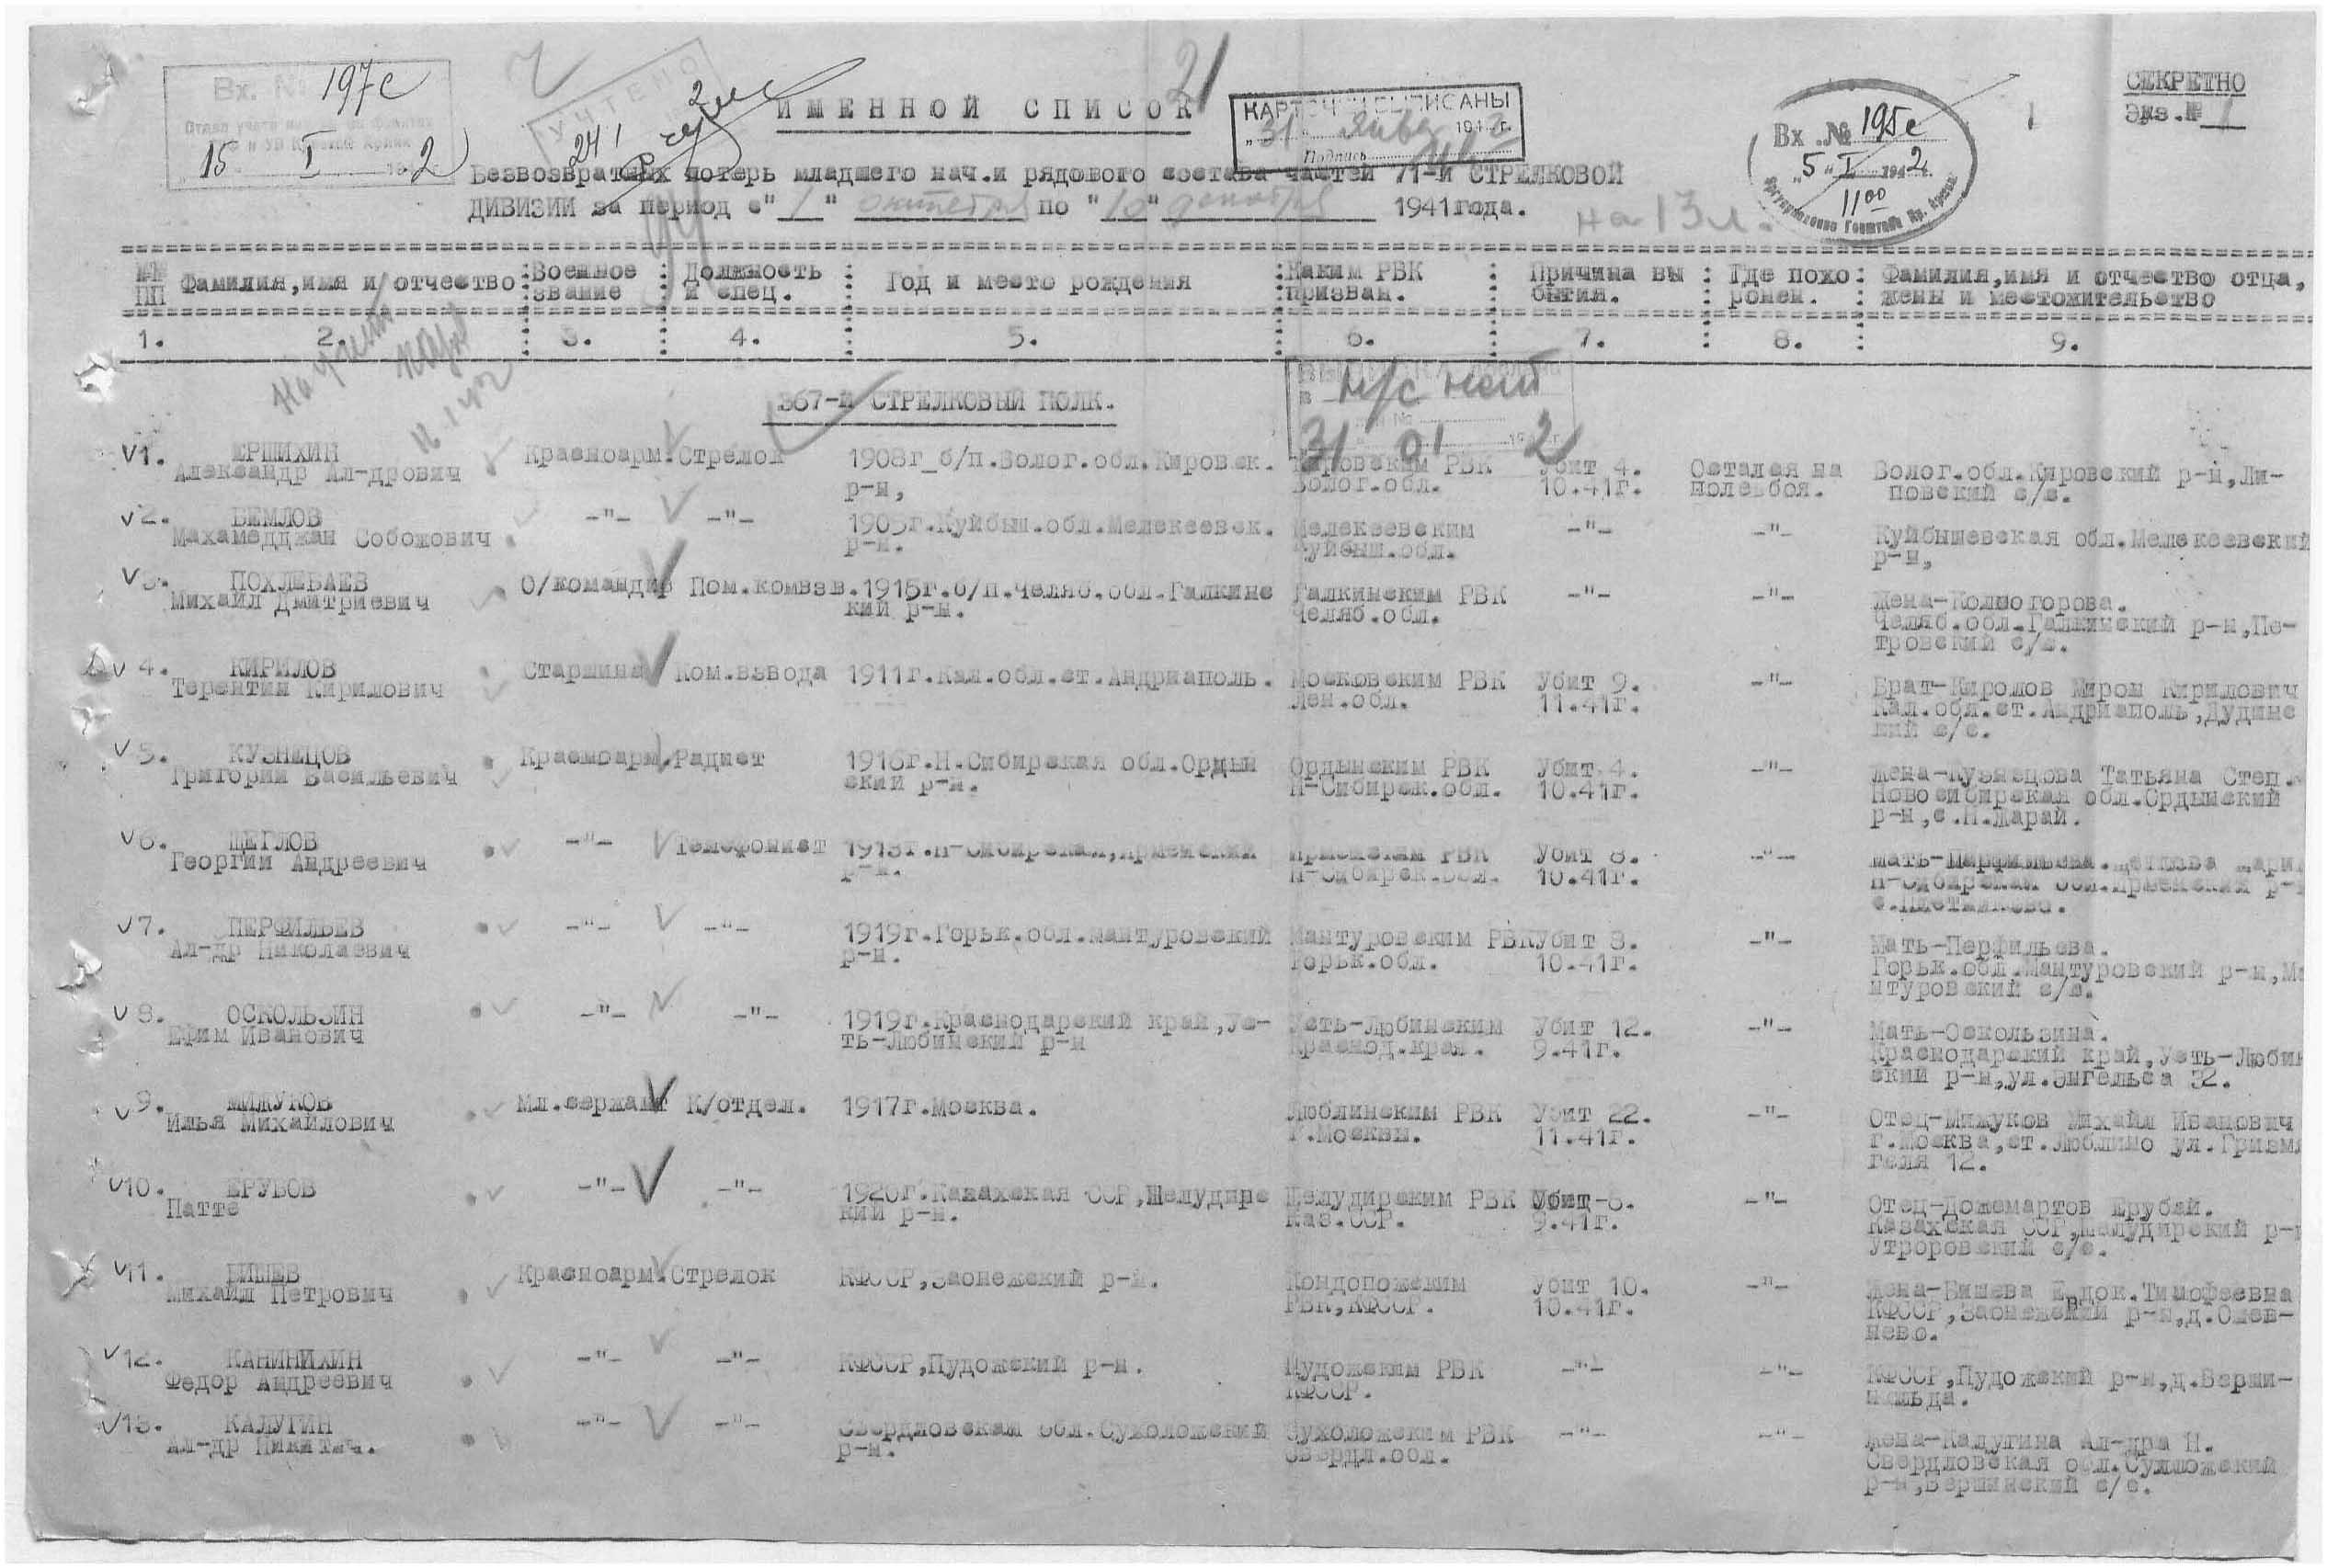 Вх. № 197с
15 I 1942
УЧТЕНО
21
ИМЕННОЙ СПИСОК
КАРТОЧКИ ВЫПИСАНЫ
"31" января 194 г.
Подпись
Вх. № 195с
"5" I 1942 г.
11 00
СЕКРЕТНО
Экз.№ 1
Безвозвратных потерь младшего нач.и рядового состава частей 71-й СТРЕЛКОВОЙ
ДИВИЗИИ за период с "1" октября по "10" декабря 1941года.
на 13 л.
№№ ПП : Фамилия,имя и отчество : Военное звание : Должность и спец. : Год и место рождения : Каким РВК призван. : Причина вы бытия. : Где похо ронен. : Фамилия,имя и отчество отца, жены и местожительство
1. 2. 3. 4. 5. 6. 7. 8. 9.
367-й СТРЕЛКОВЫЙ ПОЛК.
н/с нет
31 01 2
1. ЕРШИХИН Красноарм. Стрелок 1908г б/п.Волог.обл.Кировск. Кировским РВК Убит 4. Остался на Волог.обл.Кировский р-н,Ли-
Александр Ал-дрович р-н, Волог.обл. 10.41г. поле боя. повский с/с.
2. БЕМЛОВ -"- -"- Куйбыш.обл.Мелекесвск. Мелекесвским -"- -"- Куйбышевская обл.Мелекесвский
Махамеджан Собожович р-н. Куйбыш.обл. р-н,
3. ПОХЛЕБАЕВ О/командир Пом.комвзв. 1915г.б/п.Челяб.обл.Галкинс Галкинским РВК -"- -"- Жена-Колмогорова.
Михаил Дмитриевич кий р-н. Челяб.обл. Челяб.обл.Галкинский р-н,Пе-
тровский с/с.
4. КИРИЛОВ Старшина Ком.взвода 1911г.Кал.обл.ст.Андриаполь. Московским РВК Убит 9. -"- Брат-Киролов Мирон Кирилович
Терентий Кирилович Лен.обл. 11.41г. Кал.обл.ст.Андриаполь,Дудинс
кий с/с.
5. КУЗНЕЦОВ Красноарм. Радист 1916г.Н.Сибирская обл.Ордын Ордынским РВК Убит 4. -"- Жена-Кузнецова Татьяна Степ.
Григорий Васильевич ский р-н. Н-Сибирск.обл. 10.41г. Новосибирская обл.Ордынский
р-н,с.Н.Шарай.
6. ЩЕГЛОВ -"- Телефонист 1913г.Н-Сибирская, РВК Убит 8. -"- Мать-
Георгий Андреевич р-н. Н-Сибирск.обл. 10.41г. Н-Сибирская обл. р-н
7. ПЕРФИЛЬЕВ -"- -"- 1919г.Горьк.обл.Мантуровский Мантуровским РВК Убит 8. -"- Мать-Перфильева.
Ал-др Николаевич р-н. Горьк.обл. 10.41г. Горьк.обл.Мантуровский р-н,Ма
нтуровский с/с.
8. ОСКОЛЬЗИН -"- -"- 1919г.Краснодарский край,Ус- Усть-Любинским Убит 12. -"- Мать-Оскользина.
Ефим Иванович ть-Любинский р-н Краснод.края. 9.41г. Краснодарский край,Усть-Любин
ский р-н,ул.Энгельса 32.
9. МИЖУКОВ Мл.сержант К/отдел. 1917г.Москва. Люблинским РВК Убит 22. -"- Отец-Мижуков Михаил Иванович
Илья Михайлович г.Москвы. 11.41г. г.Москва,ст.Люблино ул.
геля 12.
10. ЕРУБОВ -"- -"- 1920г.Казахская ССР,Шелудирс Шелудирским РВК Убит 6. -"- Отец-Дошемартов Ерубай.
Патте кий р-н. Каз.ССР. 9.41г. Казахская ССР,Шелудирский р-н
Утроровский с/с.
11. БИШЕВ Красноарм. Стрелок КФССР,Заонежский р-н. Кондопожским Убит 10. -"- Жена-Бишева Евдок.Тимофеевна
Михаил Петрович РВК,КФССР. 10.41г. КФССР,Заонежский р-н,д.Ошев-
нево.
12. КАНИНИХИН -"- -"- КФССР,Пудожский р-н. Пудожским РВК -"- -"- КФССР,Пудожский р-н,д.Верши-
Федор Андреевич КФССР. нильда.
13. КАЛУГИН -"- -"- Свердловская обл.Сухоложский Сухоложским РВК -"- -"- Жена-Калугина Ал-дра Н.
Ал-др Никитич. р-н. Свердл.обл. Свердловская обл.Сухложский
р-н,Вершинский с/с.